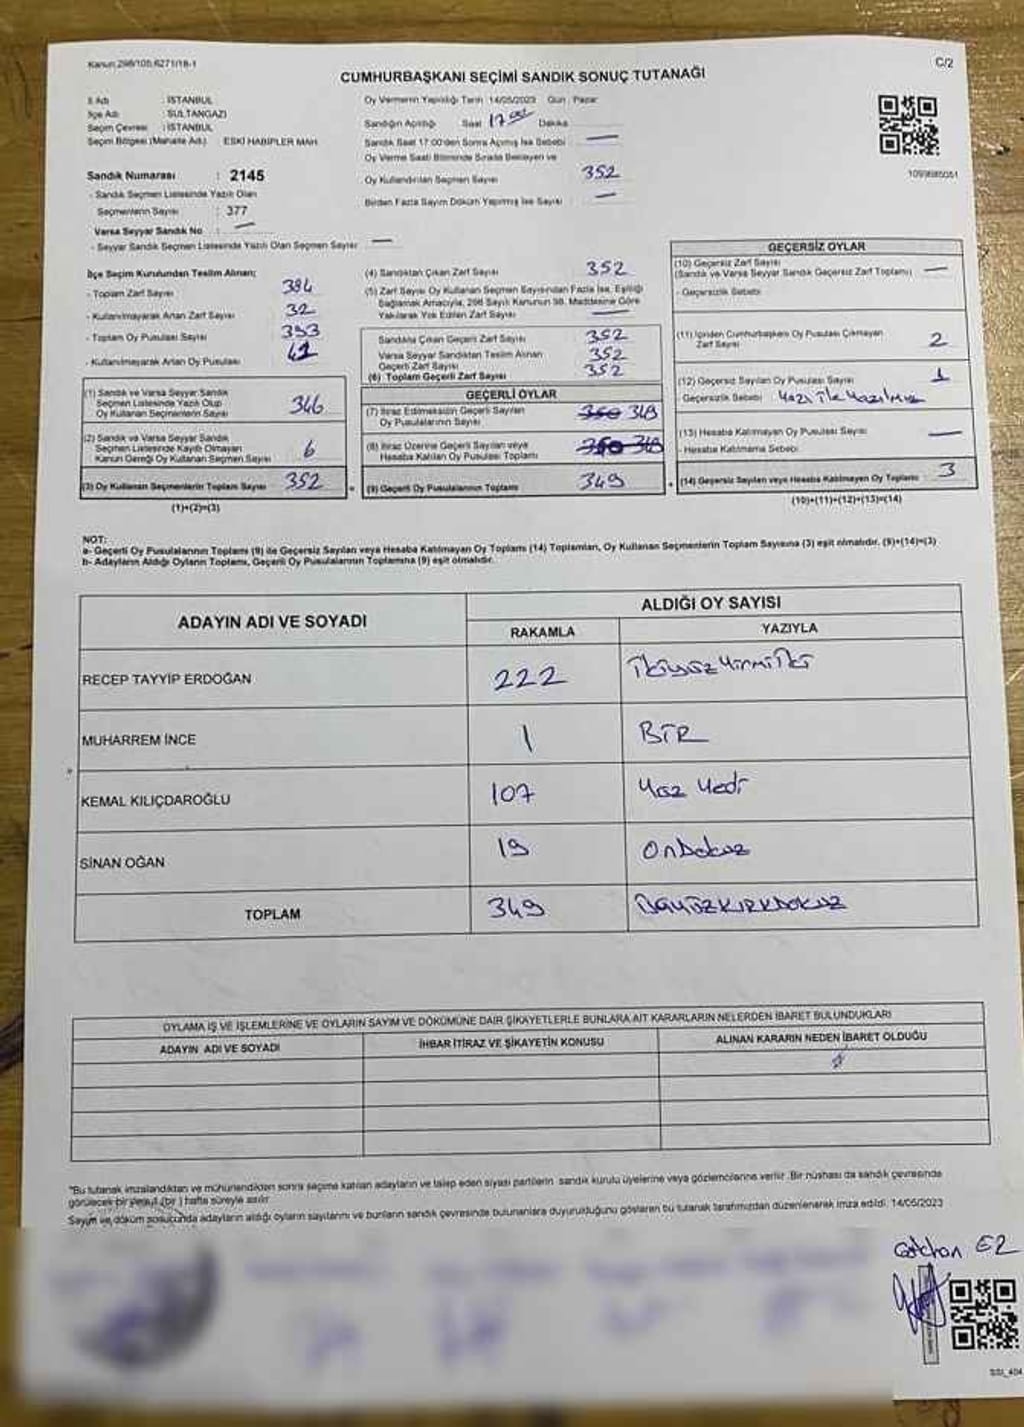 Kanun:298/105;6271/18-1
C/2
CUMHURBAŞKANI SEÇİMİ SANDIK SONUÇ TUTANAĞI
İl Adı : İSTANBUL
İlçe Adı : SULTANGAZİ
Seçim Çevresi : İSTANBUL
Seçim Bölgesi (Mahalle Adı) ESKİ HABİPLER MAH.
Sandık Numarası : 2145
- Sandık Seçmen Listesinde Yazılı Olan
Seçmenlerin Sayısı : 377
Varsa Seyyar Sandık No : —
- Seyyar Sandık Seçmen Listesinde Yazılı Olan Seçmen Sayısı —
Oy Vermenin Yapıldığı Tarih 14/05/2023 Gün : Pazar
Sandığın Açıldığı Saat 17 00 Dakika
Sandık Saat 17:00'den Sonra Açılmış İse Sebebi —
Oy Verme Saati Bitiminde Sırada Bekleyen ve
Oy Kullandırılan Seçmen Sayısı 352
Birden Fazla Sayım Döküm Yapılmış İse Sayısı —
İlçe Seçim Kurulundan Teslim Alınan;
- Toplam Zarf Sayısı 384
- Kullanılmayarak Artan Zarf Sayısı 32
- Toplam Oy Pusulası Sayısı 393
- Kullanılmayarak Artan Oy Pusulası 41
(1) Sandık ve Varsa Seyyar Sandık
Seçmen Listesinde Yazılı Olup
Oy Kullanan Seçmenlerin Sayısı 346
(2) Sandık ve Varsa Seyyar Sandık
Seçmen Listesinde Kayıtlı Olmayan
Kanun Gereği Oy Kullanan Seçmen Sayısı 6
(3) Oy Kullanan Seçmenlerin Toplam Sayısı 352
(1)+(2)=(3)
(4) Sandıktan Çıkan Zarf Sayısı 352
(5) Zarf Sayısı Oy Kullanan Seçmen Sayısından Fazla İse, Eşitliği
Sağlamak Amacıyla, 298 Sayılı Kanunun 98. Maddesine Göre
Yakılarak Yok Edilen Zarf Sayısı —
Sandıkta Çıkan Geçerli Zarf Sayısı 352
Varsa Seyyar Sandıktan Teslim Alınan
Geçerli Zarf Sayısı 352
(6) Toplam Geçerli Zarf Sayısı 352
GEÇERLİ OYLAR
(7) İtiraz Edilmeksizin Geçerli Sayılan
Oy Pusulalarının Sayısı 350 349
(8) İtiraz Üzerine Geçerli Sayılan veya
Hesaba Katılan Oy Pusulası Toplamı 350 349
(9) Geçerli Oy Pusulalarının Toplamı 349
GEÇERSİZ OYLAR
(10) Geçersiz Zarf Sayısı
(Sandık ve Varsa Seyyar Sandık Geçersiz Zarf Toplamı) —
- Geçersizlik Sebebi
(11) İçinden Cumhurbaşkanı Oy Pusulası Çıkmayan
Zarf Sayısı 2
(12) Geçersiz Sayılan Oy Pusulası Sayısı 1
Geçersizlik Sebebi Yazı ile Yazılmış
(13) Hesaba Katılmayan Oy Pusulası Sayısı —
- Hesaba Katılmama Sebebi
(14) Geçersiz Sayılan veya Hesaba Katılmayan Oy Toplamı 3
(10)+(11)+(12)+(13)=(14)
NOT:
a- Geçerli Oy Pusulalarının Toplamı (9) ile Geçersiz Sayılan veya Hesaba Katılmayan Oy Toplamı (14) Toplamları, Oy Kullanan Seçmenlerin Toplam Sayısına (3) eşit olmalıdır. (9)+(14)=(3)
b- Adayların Aldığı Oyların Toplamı, Geçerli Oy Pusulalarının Toplamına (9) eşit olmalıdır.
ADAYIN ADI VE SOYADI
ALDIĞI OY SAYISI
RAKAMLA YAZIYLA
RECEP TAYYİP ERDOĞAN 222 ikiyüzyirmiiki
MUHARREM İNCE 1 BİR
KEMAL KILIÇDAROĞLU 107 Yüz Yedi
SİNAN OĞAN 19 OnDokuz
TOPLAM 349 ÜÇYÜZKIRKDOKUZ
OYLAMA İŞ VE İŞLEMLERİNE VE OYLARIN SAYIM VE DÖKÜMÜNE DAİR ŞİKAYETLERLE BUNLARA AİT KARARLARIN NELERDEN İBARET BULUNDUKLARI
ADAYIN ADI VE SOYADI İHBAR İTİRAZ VE ŞİKAYETİN KONUSU ALINAN KARARIN NEDEN İBARET OLDUĞU
*Bu tutanak imzalandıktan ve mühürlendikten sonra seçime katılan adayların ve talep eden siyasi partilerin sandık kurulu üyelerine veya gözlemcilerine verilir. Bir nüshası da sandık çevresinde
görülecek bir yere 1 (bir) hafta süreyle asılır.
Sayım ve döküm sonucunda adayların aldığı oyların sayılarını ve bunların sandık çevresinde bulunanlara duyurulduğunu gösteren bu tutanak tarafımızdan düzenlenerek imza edildi. 14/05/2023
SSI_404